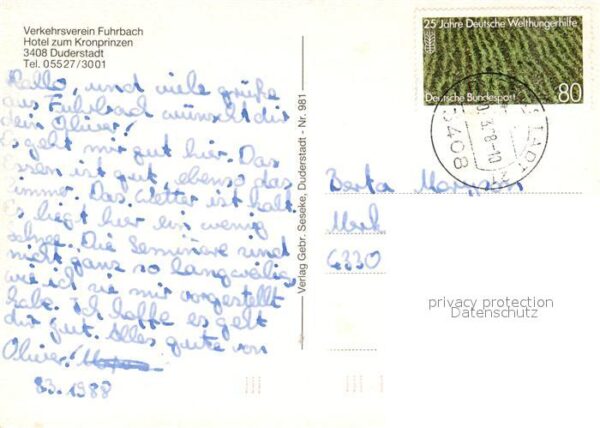 Verkehrsverein Fuhrbach
Hotel zum Kronprinzen
3408 Duderstadt
Tel. 05527/3001
Hallo, und viele grüße
aus Fuhrbach wünscht dir
dein Oliver!
Es geht mir gut hier. Das
Essen ist gut, ebenso das
Zimmer. Das Wetter ist kalt.
Es liegt hier ein wenig
schnee. Die Seminare sind
nicht ganz so langweilig,
wie ich sie mir vorgestellt
habe. Ich hoffe es geht
dir gut. Alles gute von
Oliver!
8.3.1988
Verlag Gebr. Seseke, Duderstadt - Nr. 981
25 Jahre Deutsche Welthungerhilfe
Deutsche Bundespost 80
3408
Berta
6330
privacy protection
Datenschutz